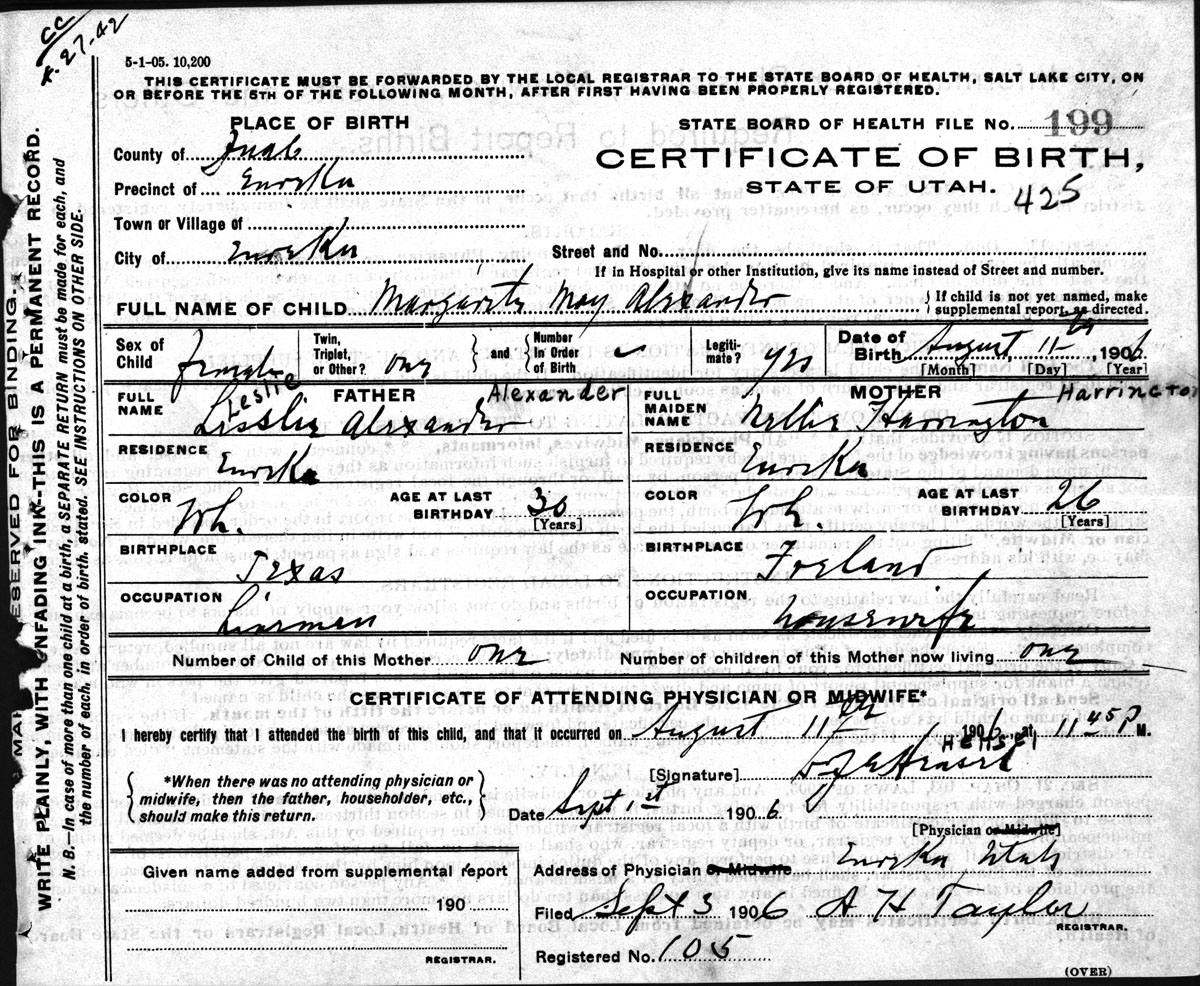 CC
K-27-42
5-1-05. 10,200
THIS CERTIFICATE MUST BE FORWARDED BY THE LOCAL REGISTRAR TO THE STATE BOARD OF HEALTH, SALT LAKE CITY, ON
OR BEFORE THE 5TH OF THE FOLLOWING MONTH, AFTER FIRST HAVING BEEN PROPERLY REGISTERED.
PLACE OF BIRTH
STATE BOARD OF HEALTH FILE No. 199
County of Juab
CERTIFICATE OF BIRTH,
Precinct of Eureka
STATE OF UTAH.
425
Town or Village of
City of Eureka
Street and No.
If in Hospital or other Institution, give its name instead of Street and number.
FULL NAME OF CHILD Margarete May Alexander
{If child is not yet named, make supplemental report, as directed.
Sex of Child Female
Twin, Triplet, or Other? one
} and { Number In Order of Birth
Legitimate? yes
Date of Birth August 11th, 1906
[Month] [Day] [Year]
FATHER
Alexander
MOTHER
Harrington
Leslie
FULL NAME Lisslie Alexander
FULL MAIDEN NAME Nellie Harrington
RESIDENCE Eureka
RESIDENCE Eureka
COLOR Wh
AGE AT LAST BIRTHDAY 30
[Years]
COLOR Wh.
AGE AT LAST BIRTHDAY 26
[Years]
BIRTHPLACE Texas
BIRTHPLACE Ireland
OCCUPATION Liirman
OCCUPATION housewife
Number of Child of this Mother one
Number of children of this Mother now living one
CERTIFICATE OF ATTENDING PHYSICIAN OR MIDWIFE*
I hereby certify that I attended the birth of this child, and that it occurred on August 11th, 1906, at 11 45 P M.
HENSEL
*When there was no attending physician or
midwife, then the father, householder, etc.,
should make this return.
[Signature] Hensel
Date Sept 1st 1906
[Physician or Midwife]
Eureka Utah
Address of Physician or Midwife
Given name added from supplemental report
190
REGISTRAR.
Filed Sept 3 1906 A H Taylor
REGISTRAR.
Registered No. 105
(OVER)
MARGIN RESERVED FOR BINDING.
WRITE PLAINLY, WITH UNFADING INK-THIS IS A PERMANENT RECORD.
N. B.—In case of more than one child at a birth, a SEPARATE RETURN must be made for each, and
the number of each, in order of birth, stated. SEE INSTRUCTIONS ON OTHER SIDE.